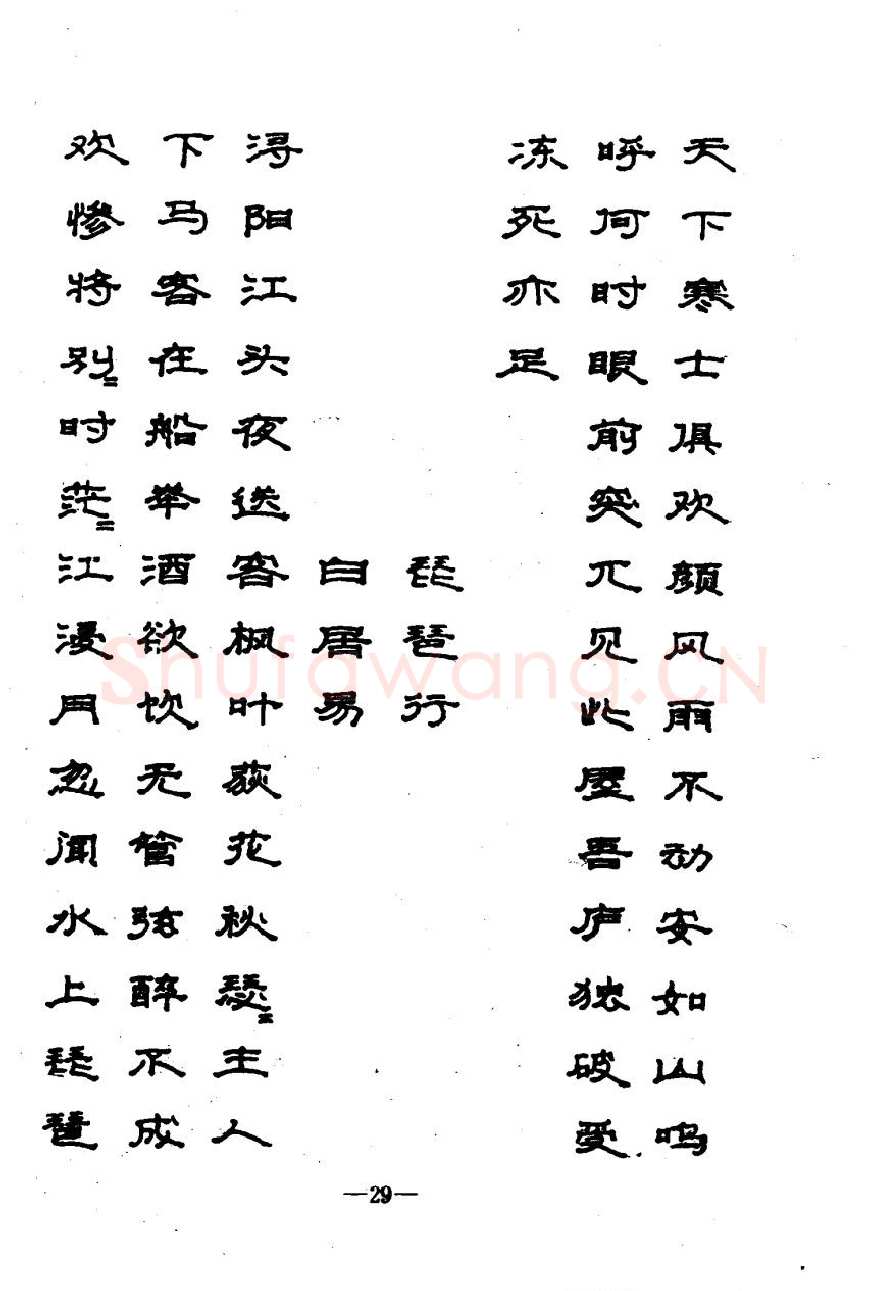 天下寒士俱欢颜风雨不动安如山呜
呼何时眼前突兀见此屋吾庐独破受
冻死亦足
琵琶行
白居易
浔阳江头夜送客枫叶荻花秋瑟〻主人
下马客在船举酒欲饮无管弦醉不成
欢惨将别〻时茫〻江浸月忽闻水上琵琶
—29—
Shufawang.CN